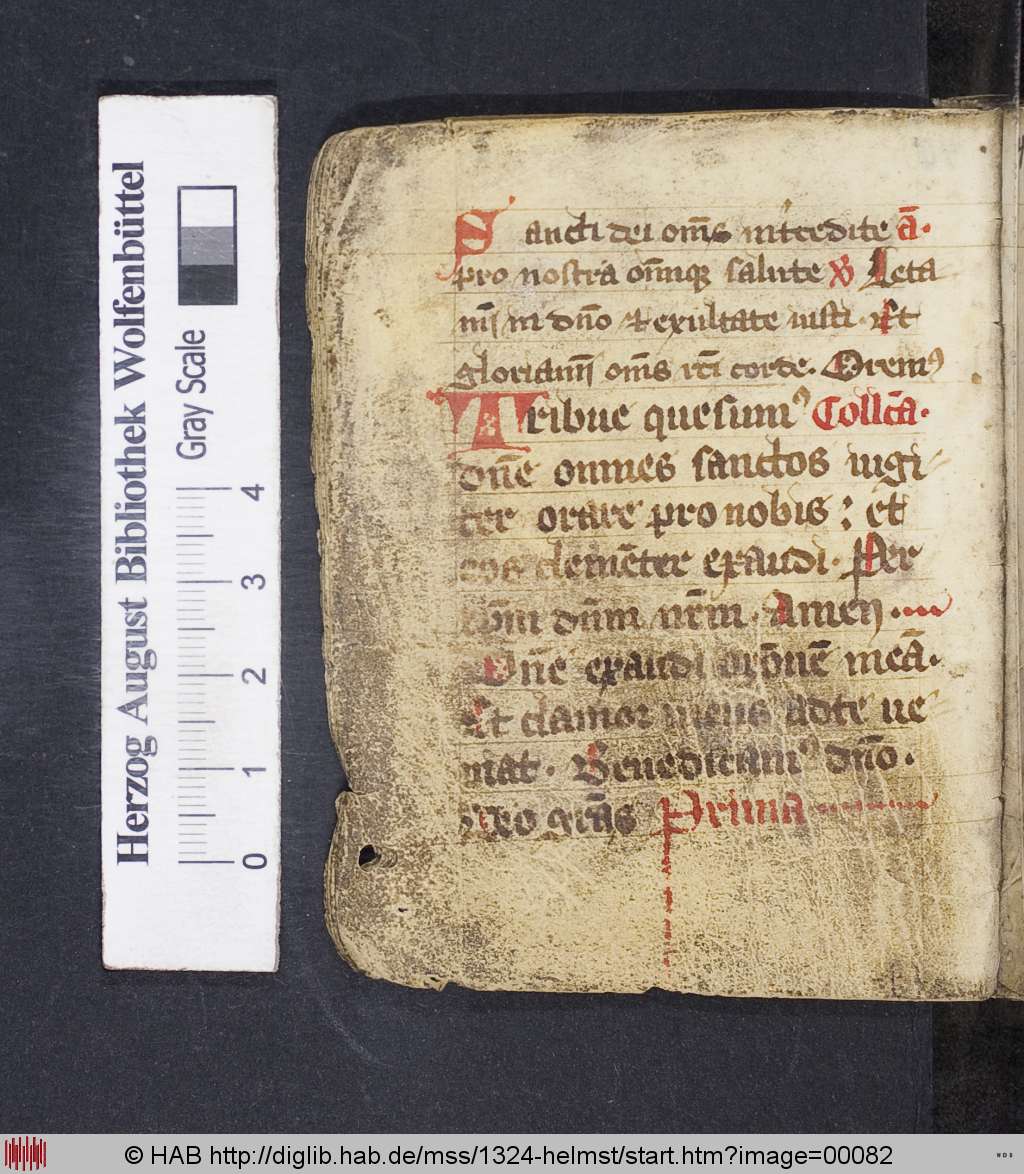 Herzog August Bibliothek Wolfenbüttel
Gray Scale
0 1 2 3 4
Sancti dei om̄s int'cedite a̅.
pro nostra om̅iq; salute ℣ Leta
mī in dn̅o ⁊ exultate iusti. Et
gloriamī om̄s rc̅i corde. Orem⁹
Tribue quesum⁹ Collc̅a.
dn̅e omnes sanctos iugi
ter orare pro nobis : et
eos clemēter exaudi. Per
xp̅m dn̅m nr̅m. Amen.
Dn̅e exaudi or̅onē meā.
Et clamor meus ad te ue
niat. Benedicam⁹ dn̅o.
Deo gr̅as Prima
© HAB http://diglib.hab.de/mss/1324-helmst/start.htm?image=00082